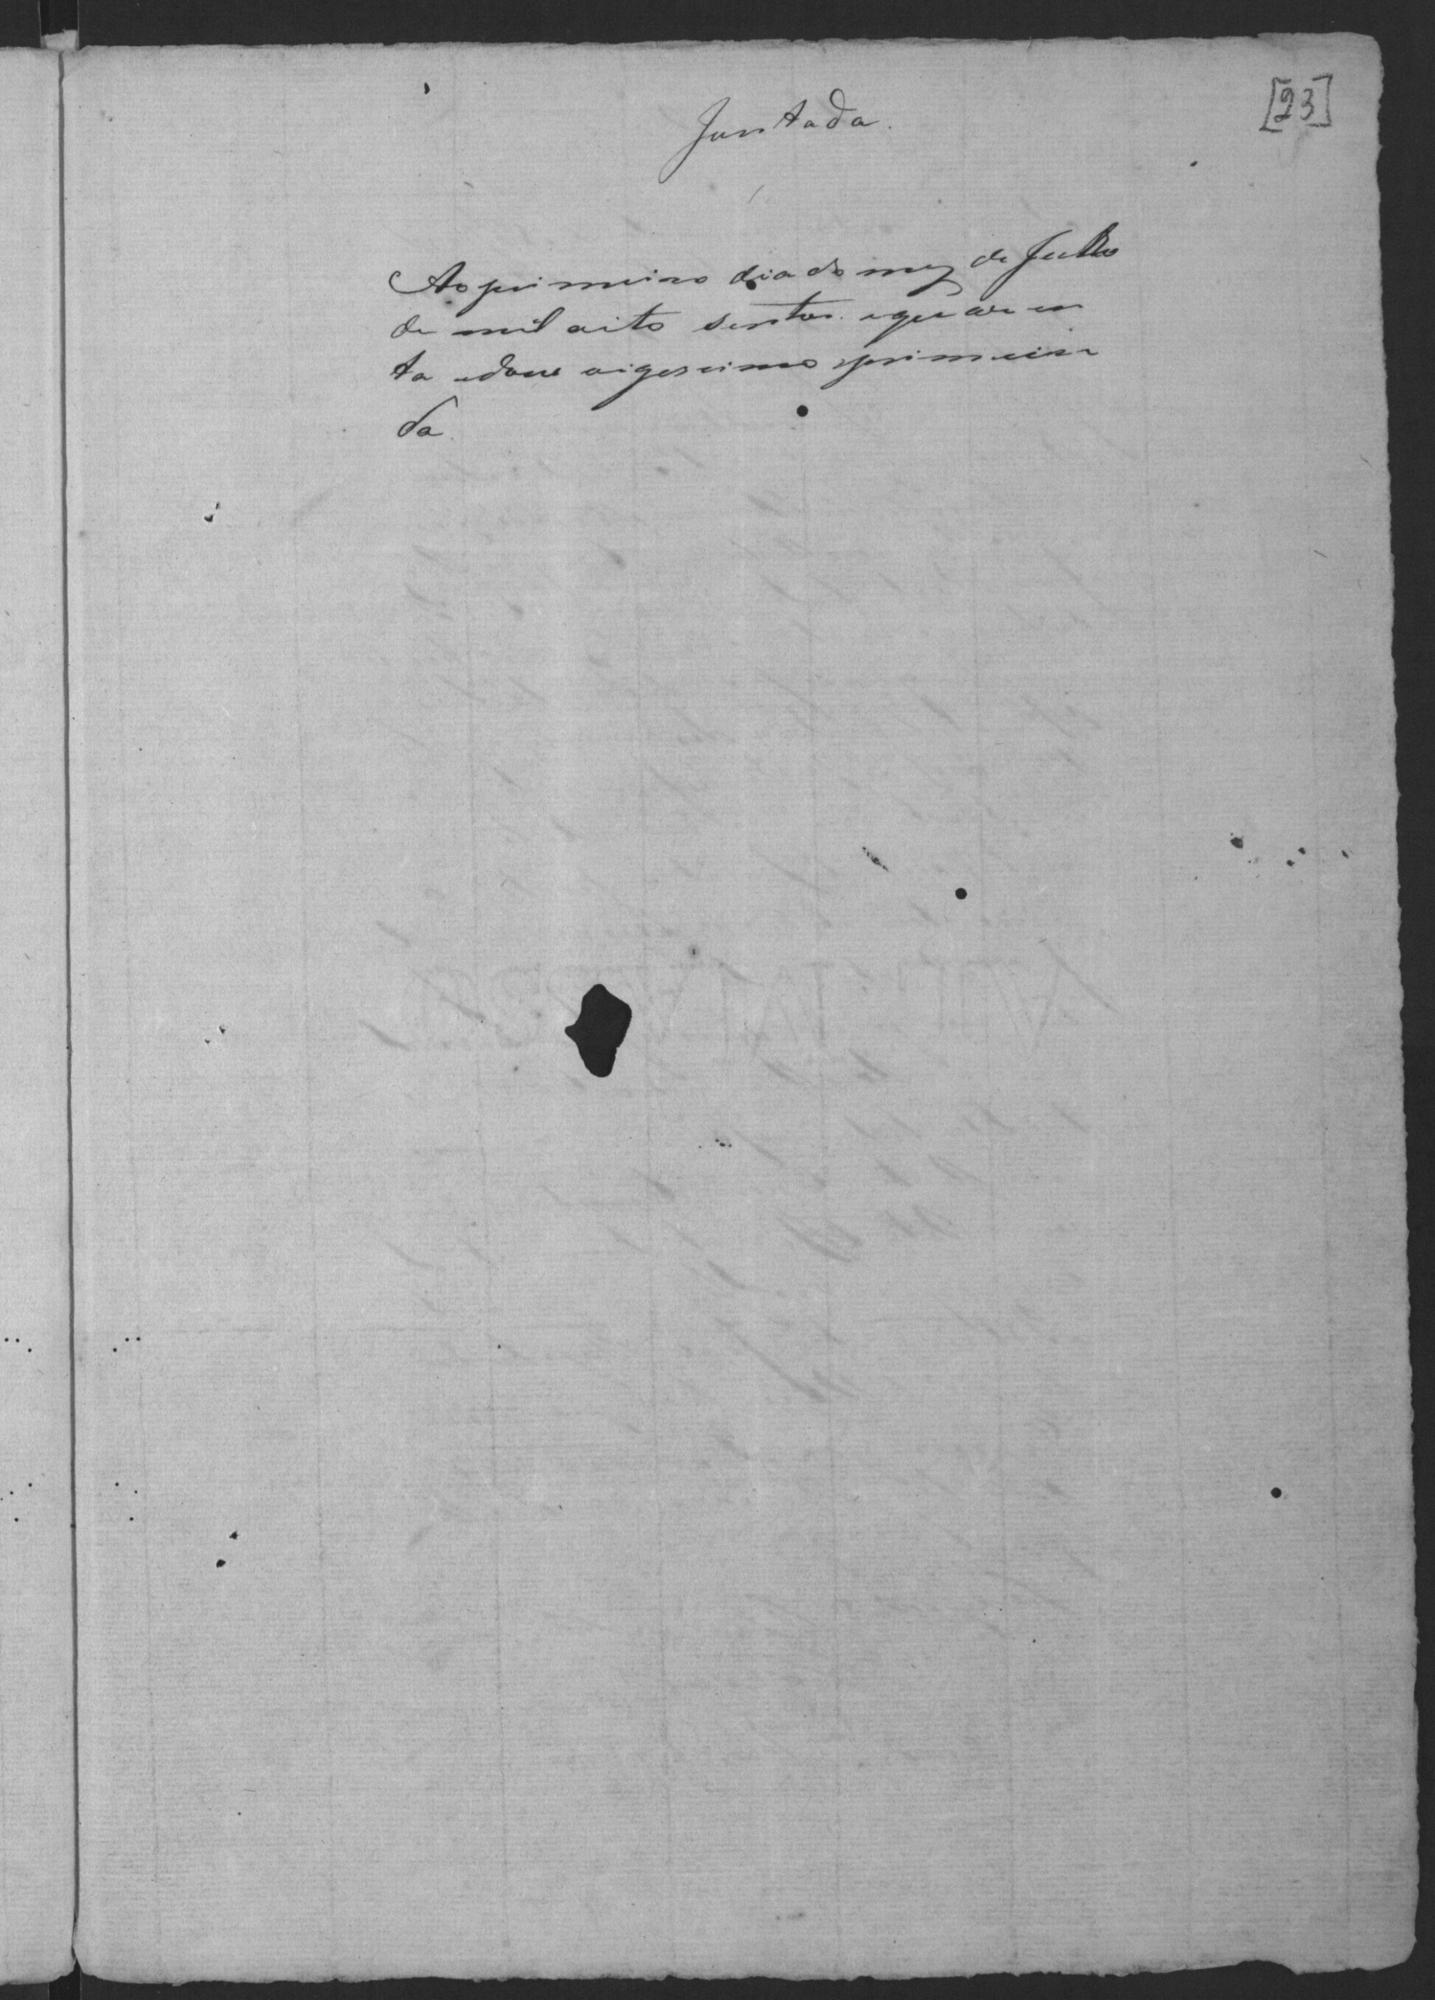 [23]
Juntada.
Ao primeiro dia do mez de Julho
de mil oito sentos e quaren
ta e dous vigescimo e primeiro
da